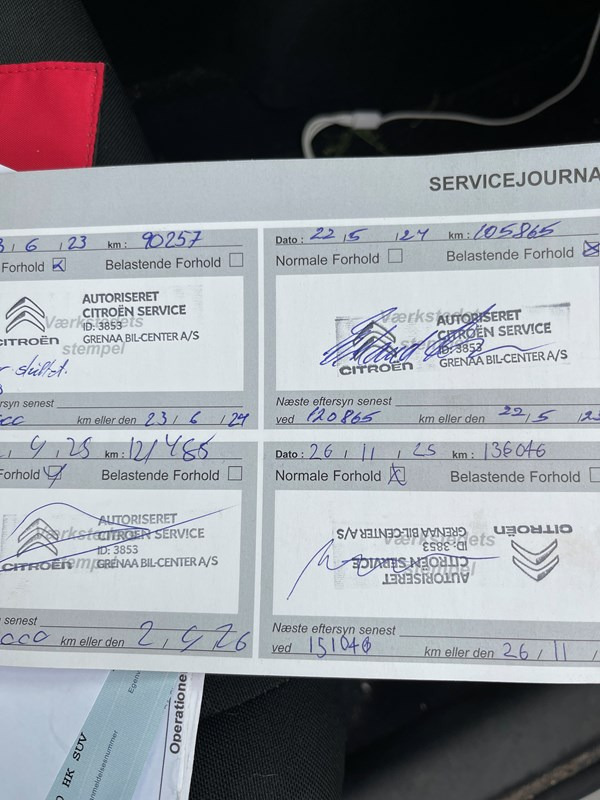 SERVICEJOURNA
3 / 6 / 23 km: 90257
Forhold Belastende Forhold
AUTORISERET
CITROËN SERVICE
ID: 3853
GRENAA BIL-CENTER A/S
Værkstedets
stempel
CITROËN
skiftet.
ersyn senest
km eller den 23 / 6 / 24
Dato: 22 / 5 / 24 km: 105865
Normale Forhold Belastende Forhold
AUTORISERET
CITROËN SERVICE
ID: 3853
GRENAA BIL-CENTER A/S
Værkstedets
CITROËN
Næste eftersyn senest
ved 120865 km eller den 22 / 5 / 25
4 / 25 km: 121485
Forhold Belastende Forhold
AUTORISERET
CITROËN SERVICE
ID: 3853
GRENAA BIL-CENTER A/S
Værkstedets
stempel
CITROËN
senest
000 km eller den 2 / 4 / 26
Dato: 26 / 11 / 25 km: 136046
Normale Forhold Belastende Forhold
AUTORISERET
CITROËN SERVICE
ID: 3853
GRENAA BIL-CENTER A/S
Værkstedets
stempel
CITROËN
Næste eftersyn senest
ved 151046 km eller den 26 / 11 /
HK SUV
Egenv
anmeldelsesnummer
Operatione